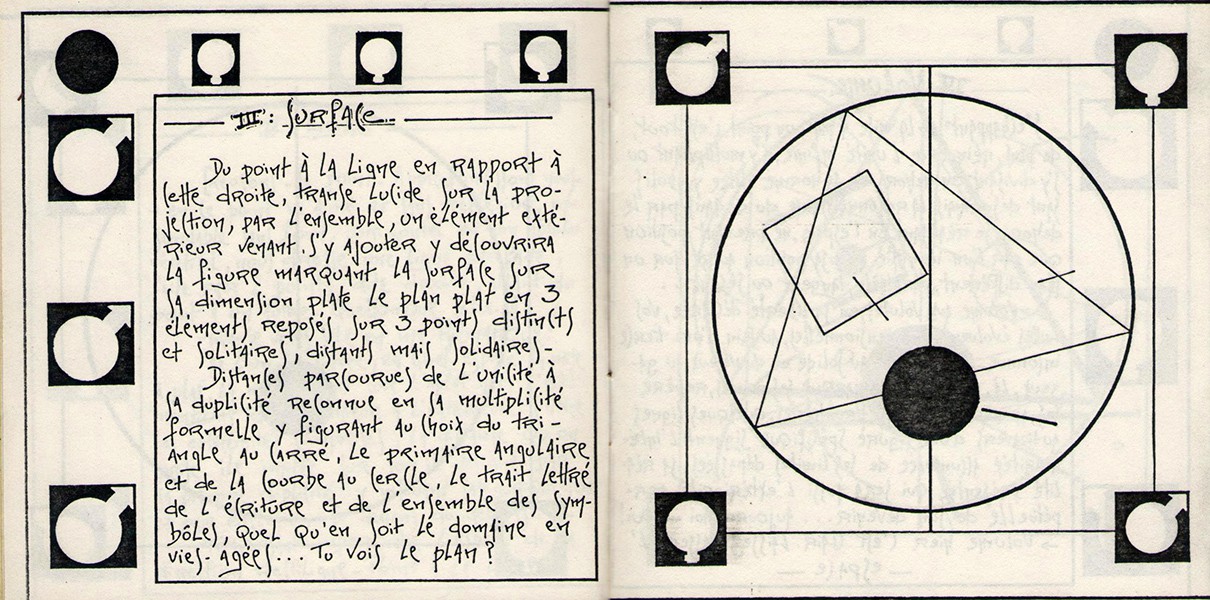 III : SURFACE...
Du point à la ligne en rapport à
cette droite, transe lucide sur la pro-
jection, par l'ensemble, un élément exté-
rieur venant s'y ajouter y découvrira
la figure marquant la surface sur
sa dimension plate le plan plat en 3
éléments reposés sur 3 points distincts
et solitaires, distants mais solidaires -
Distances parcourues de l'unicité à
sa duplicité reconnue en sa multiplicité
formelle y figurant au choix du tri-
angle au carré, le primaire angulaire
et de la courbe au cercle, le trait lettré
de l'écriture et de l'ensemble des sym-
bôles, quel qu'en soit le domaine en
vies-agées... Tu vois le plan ?